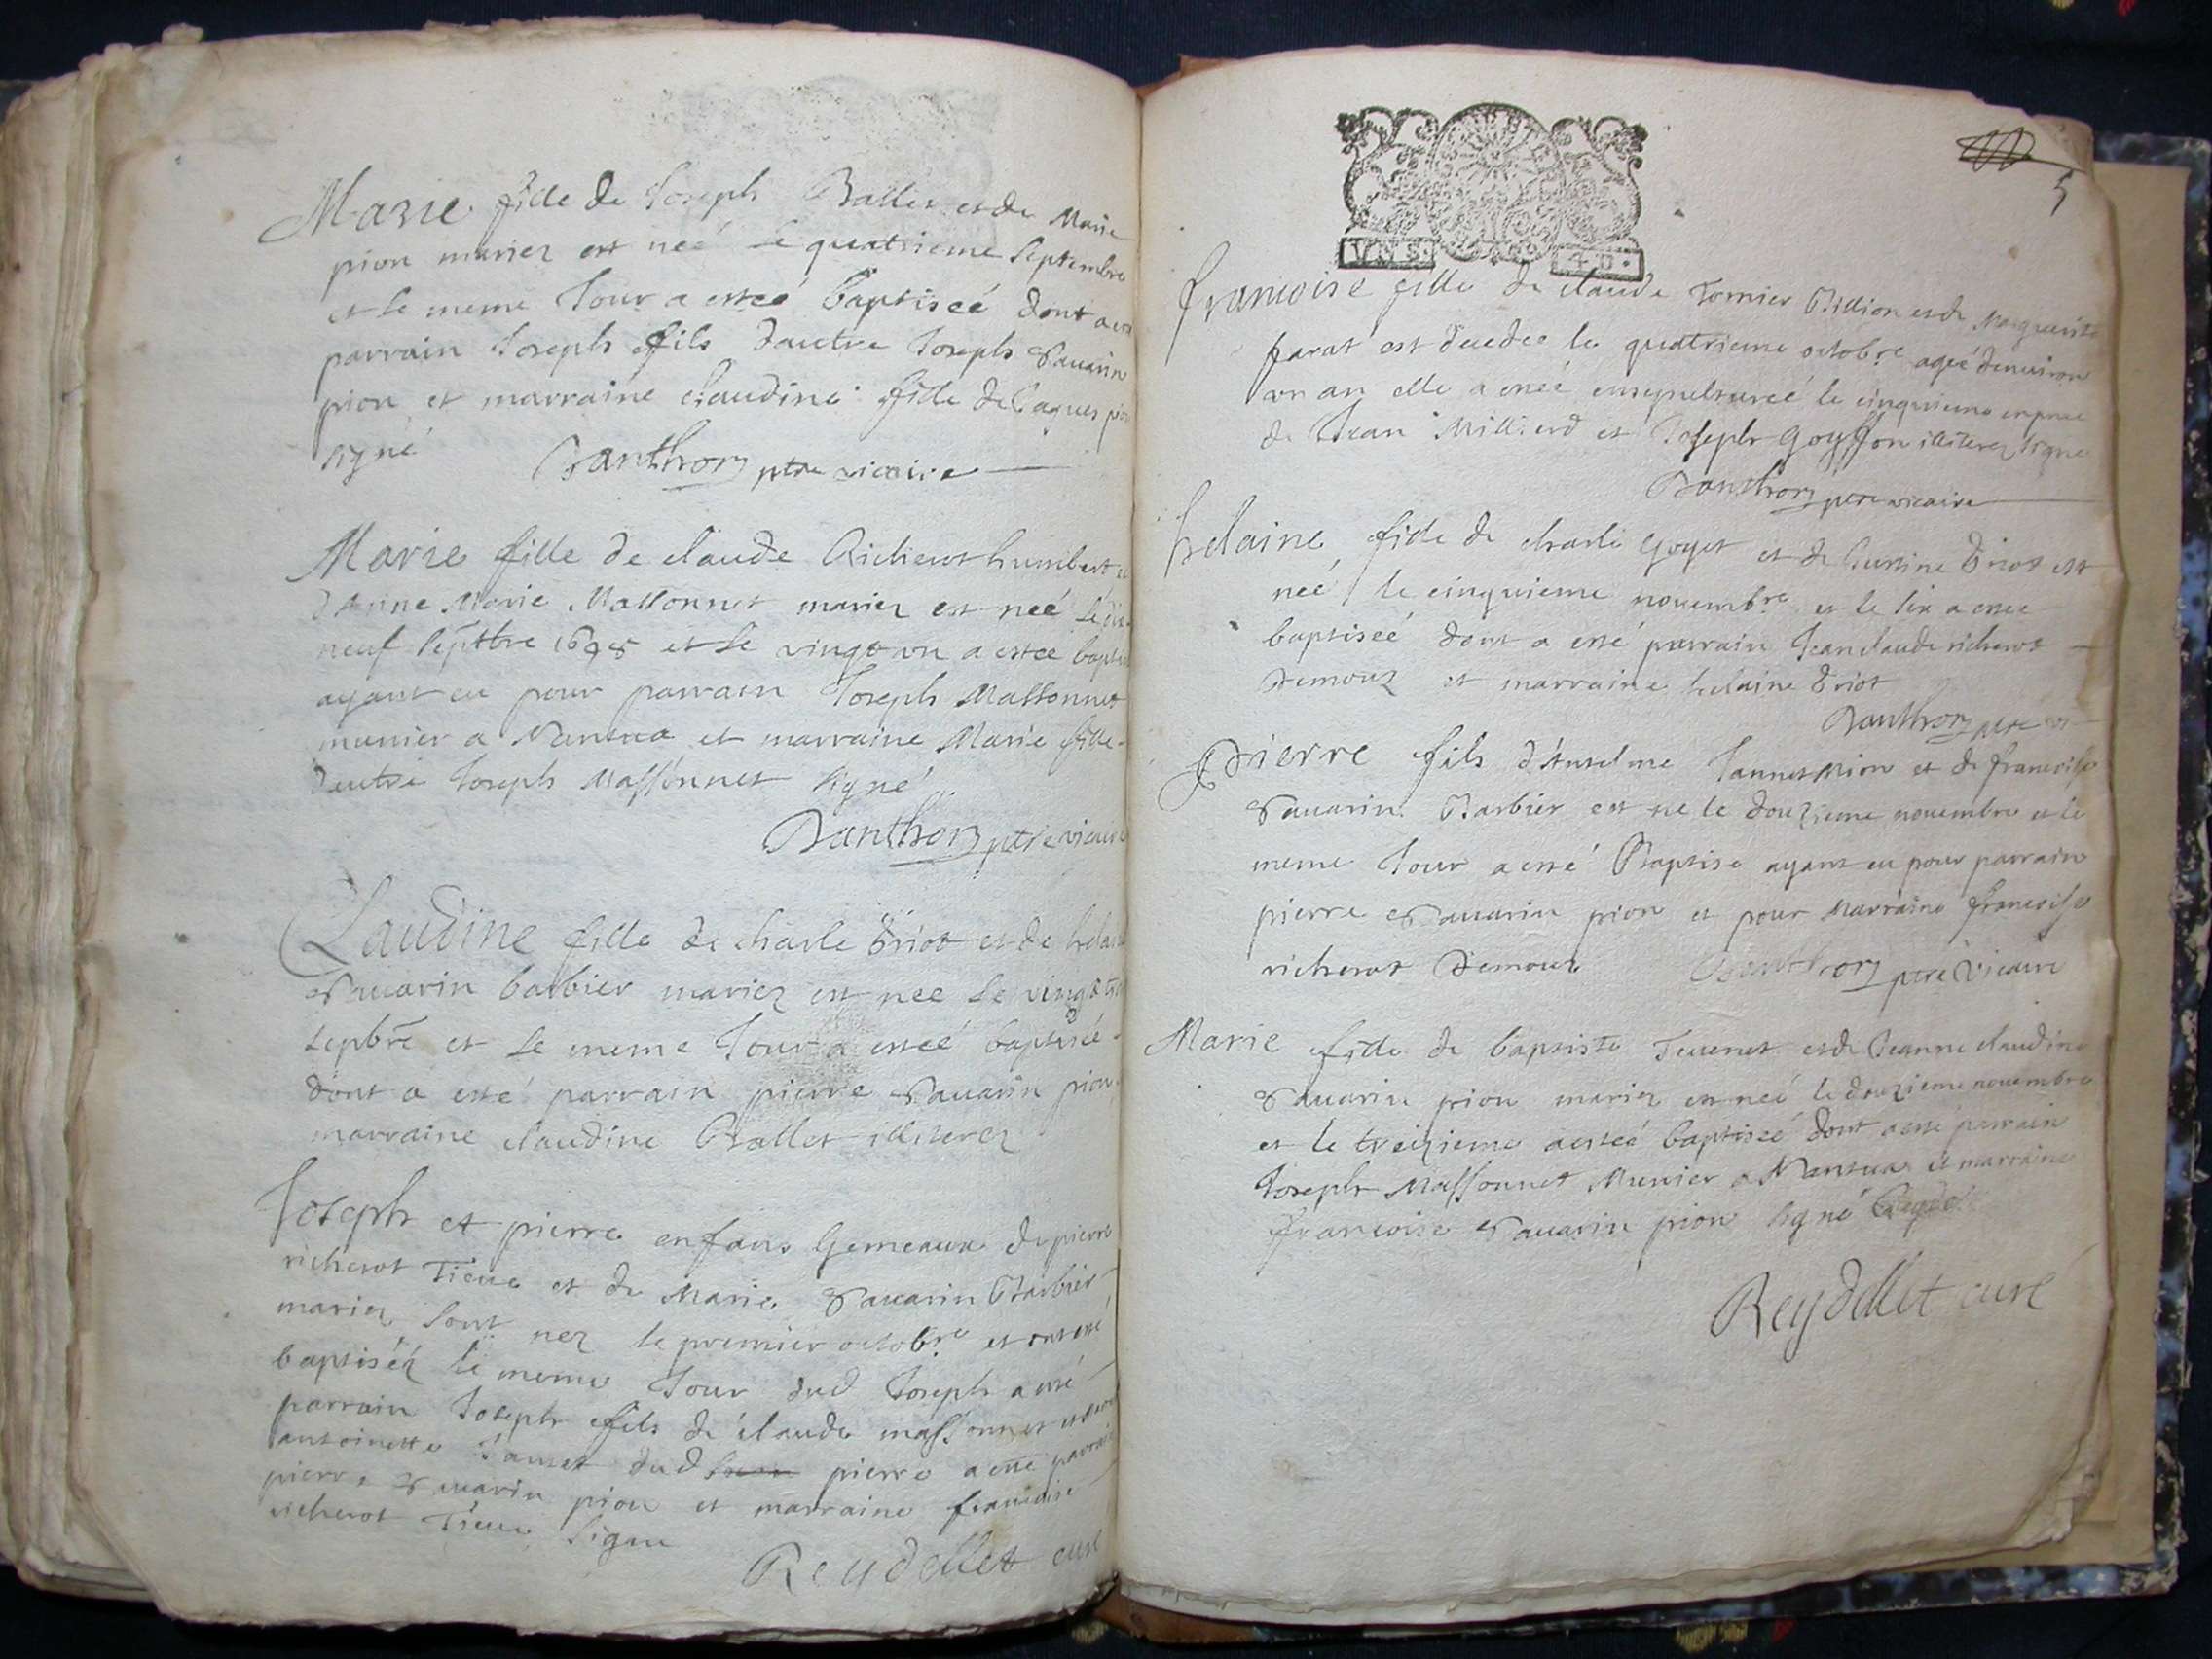 Marie fille de Joseph Ballet et de Marie
pion mariez est neé le quatrieme septembre
et le meme Jour a esteé baptiseé dont a
parrain Joseph fils dautre Joseph Sauarin
pion et marraine claudine fille de Jaques
signé Danthon ptre vicaire
Marie fille de claude Richerot humbert
danne Marie Massonnet mariez est neé le dix
neuf septbre et le vingt un a esteé
ayant eu pour parrain Joseph Massonnet
munier a Nantua et marraine Marie fille
dautre Joseph Massonnet signé
Danthon ptre vicaire
Claudine fille de charle driot et de
Sauarin barbier mariez est nee le vingt
sepbre et le meme Jour a esteé baptiseé
dont a esté parrain pierre Sauarin pion
marraine claudine Ballet illiterez
Joseph et pierre enfans Gemeaux de pierre
richerot et de Marie Sauarin Barbier
mariez sont nez le premier octobre et ont esté
baptiséz le meme Jour dud Joseph a esté
parrain Joseph fils de claude massonnet
antoinette dud pierre a esté parrain
pierre Sauarin pion et marraine francoise
richerot signé
Reydellet curé
VN S. 4 D.
5
francoise fille de claude et de Marguerite
est decedee le quatrieme octobre ageé denuiron
vn an elle a esteé ensepultureé le cinquieme
de Jean Milliend et Joseph Goyffon illiterez signé
Danthon ptre vicaire
helaine fille de charle goyet et de driot est
neé le cinquieme nouembre et le six a estee
baptiseé dont a esté parrain Jean claude richerot
demouz et marraine helaine driot
Danthon ptre
Pierre fils d'Anselme et de francoise
Sauarin Barbier est ne le douzieme nouembre et le
meme Jour a esté Baptisé ayant eu pour parrain
pierre Sauarin pion et pour Marraine francoise
richerot Demouz Danthon ptre vicaire
Marie fille de baptiste et de Jeanne claudine
Sauarin pion mariez est neé le douzieme nouembre
et le treizieme a esteé baptiseé dont a esté parrain
Joseph Massonnet Munier a Nantua et marraine
francoise Sauarin pion signé
Reydellet curé